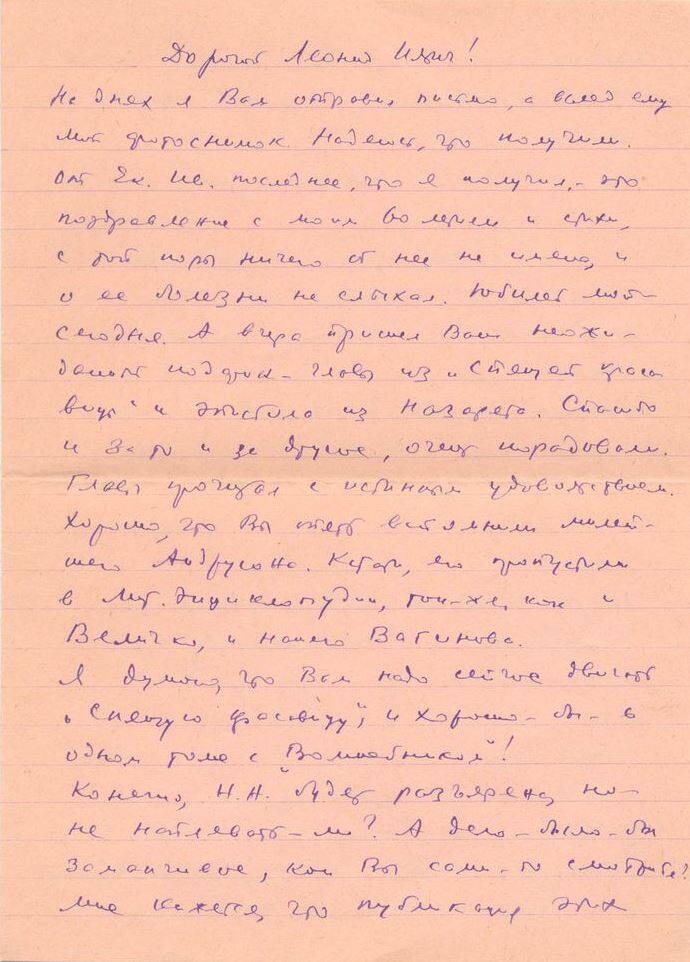 Дорогой Леонид Ильич!
На днях я Вам отправил письмо, а вслед ему
мой фотоснимок. Надеюсь, что получили.
От Ек. Ив. последнее, что я получил, – это
поздравление с моим 80 летием и стихи,
с той поры ничего от нее не имею, и
о ее болезни не слыхал. Юбилей мой –
сегодня. А вчера пришел Ваш неожи-
данный подарок – главы из „Спящей краса
вицы" и из Назарета. Спасибо
и за то и за другое, очень порадовали.
Главы прочитал с истинным удовольствием.
Хорошо, что Вы опять вспомнили милей-
шего Андрусона. Кстати, его пропустили
в Лит. Энциклопедии, так-же, как и
Величко, и нашего Вагинова.
Я думаю, что Вам надо сейчас двигать
„Спящую красавицу", и хорошо-бы – в
одном томе с „Волшебником"!
Конечно, Н.Н. будет разъярена, но –
не наплевать-ли? А дело-было-бы
заманчивое, как Вы сами-то смотрите?
Мне кажется, что публикация этих